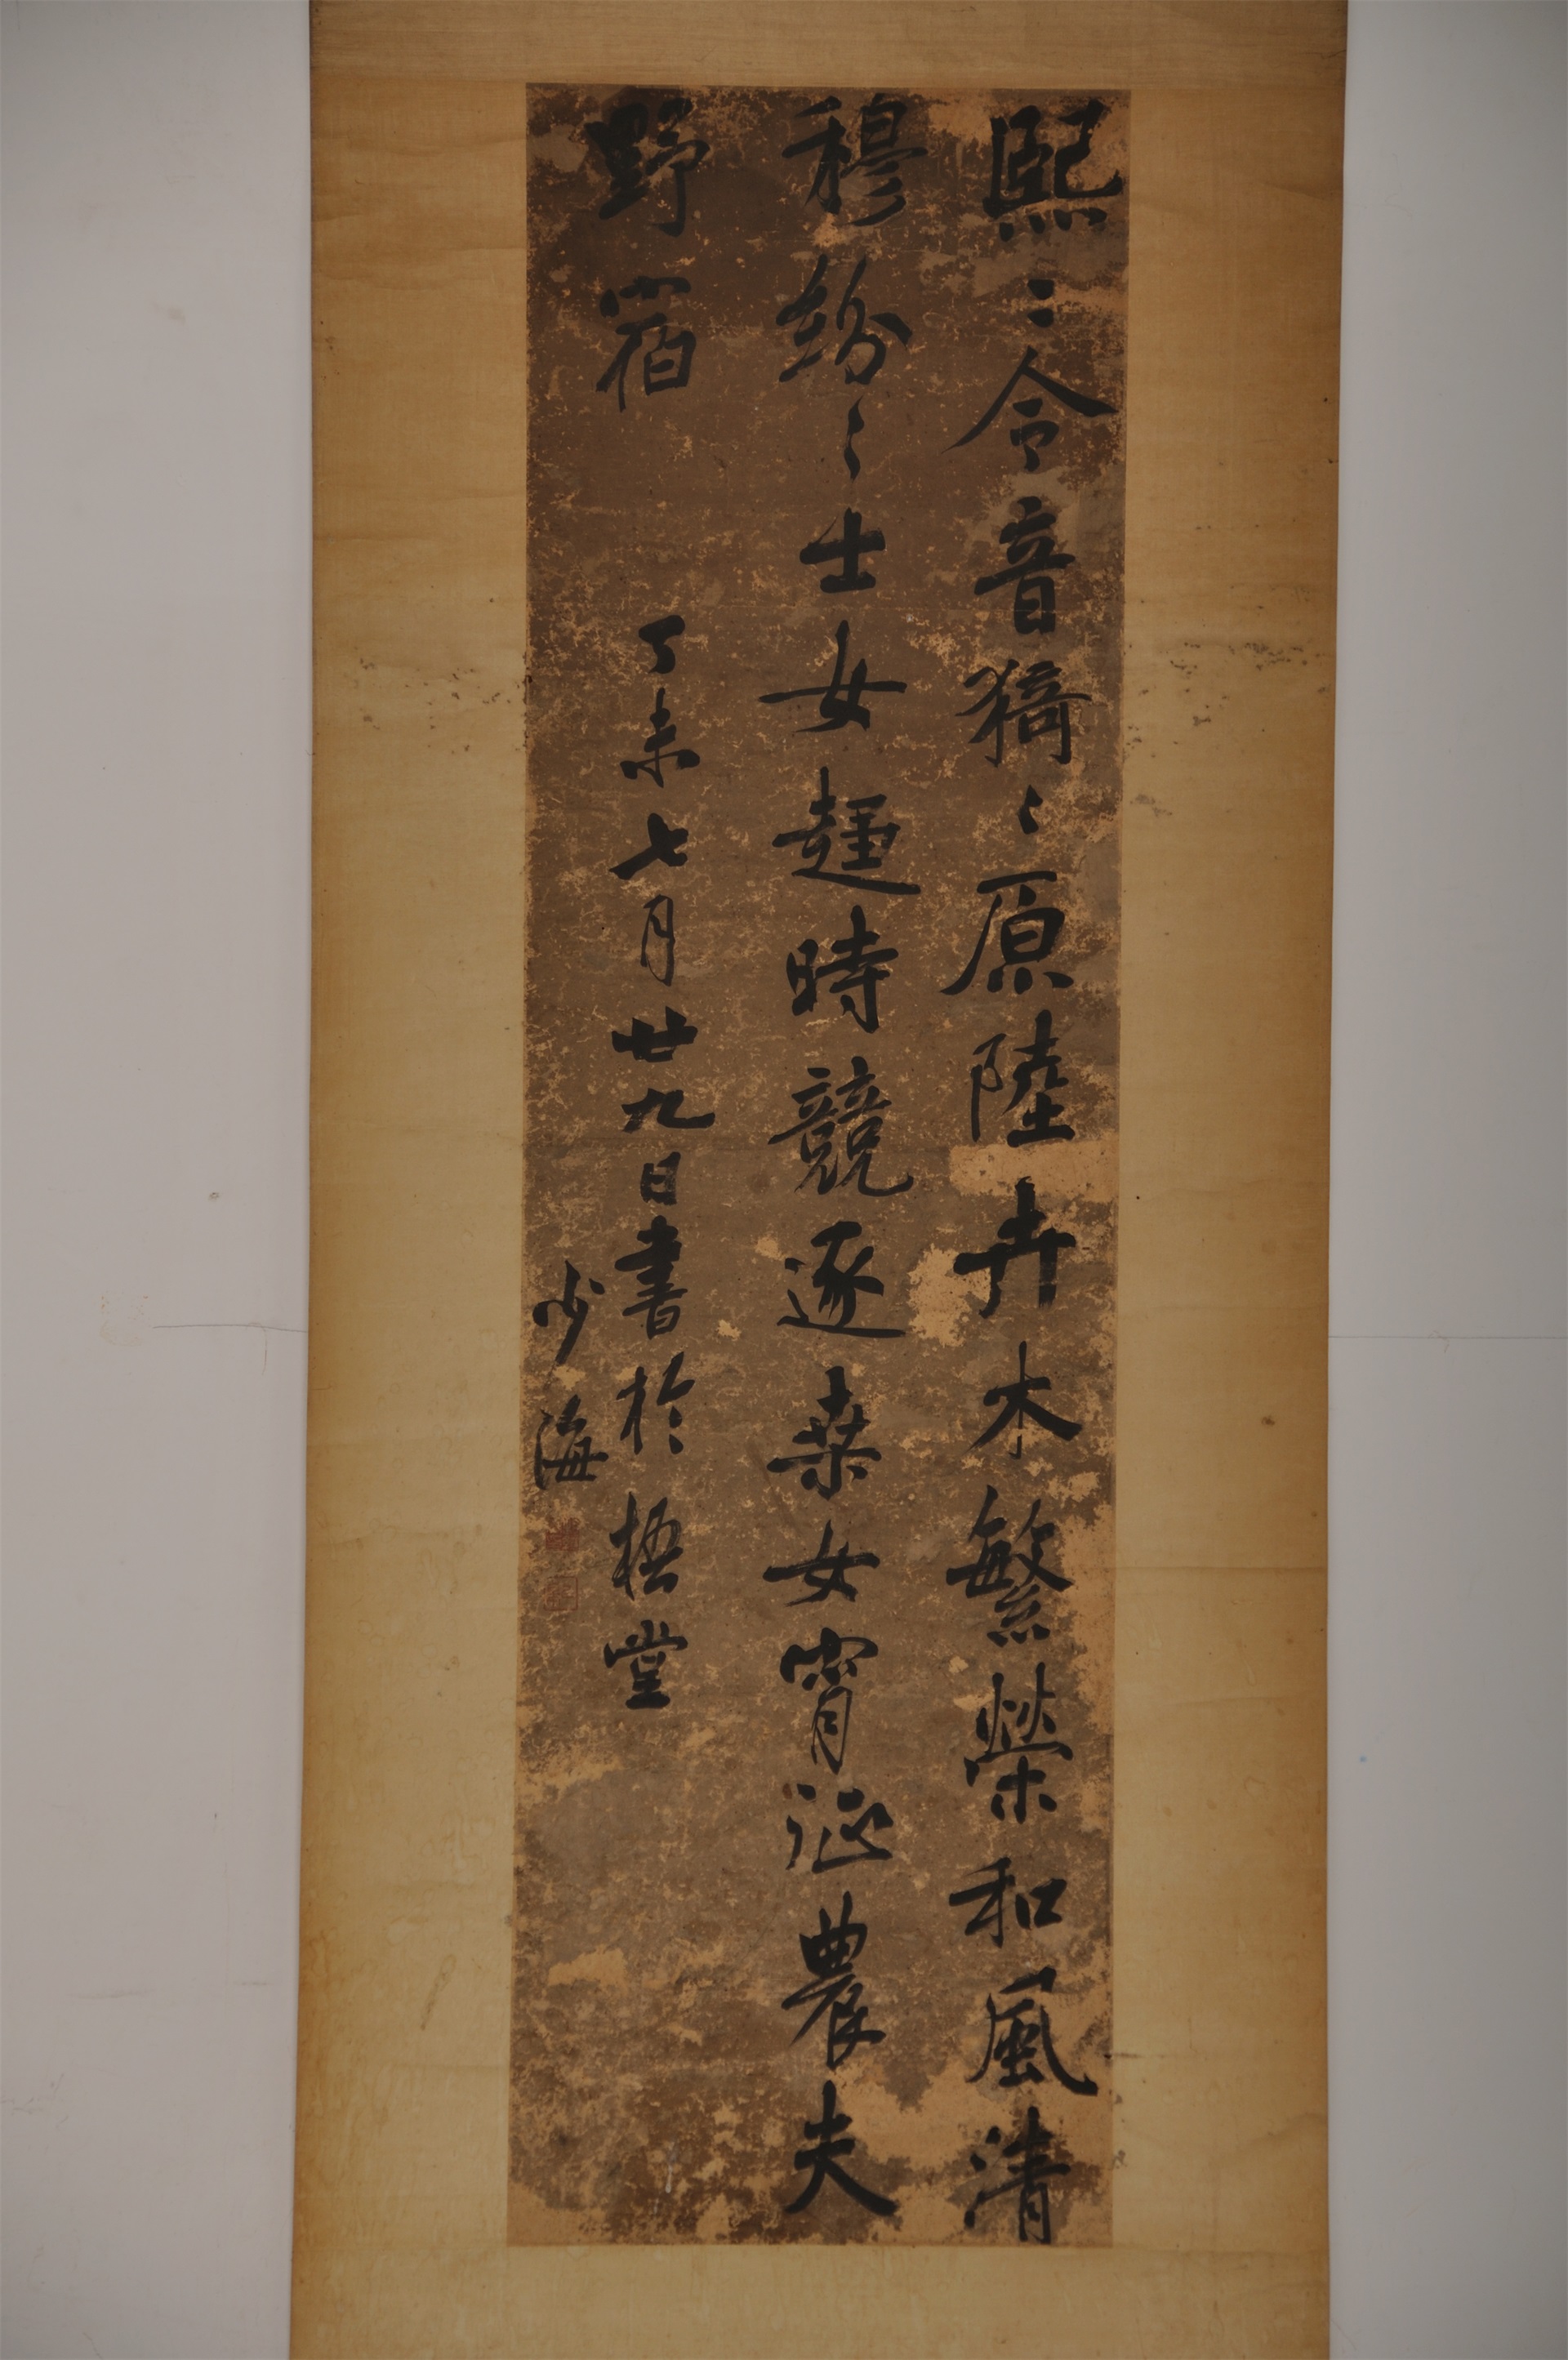 熙〻令音猗〻原陸卉木繁榮和風清
穆紛〻士女趨時競逐桑女宵征農夫
野宿
丁未七月廿九日書於梧堂
少海